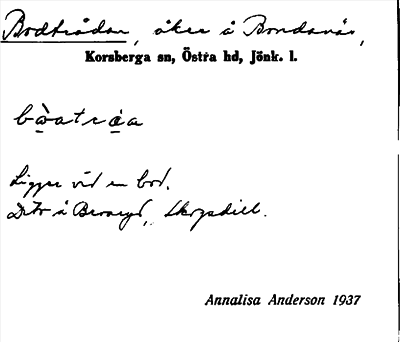 Bodträdan, åker å Bondanäs,
Korsberga sn, Östra hd, Jönk. l.
Ligger vid en bod.
D:o å Beraryd, Skogsdell.
Annalisa Anderson 1937